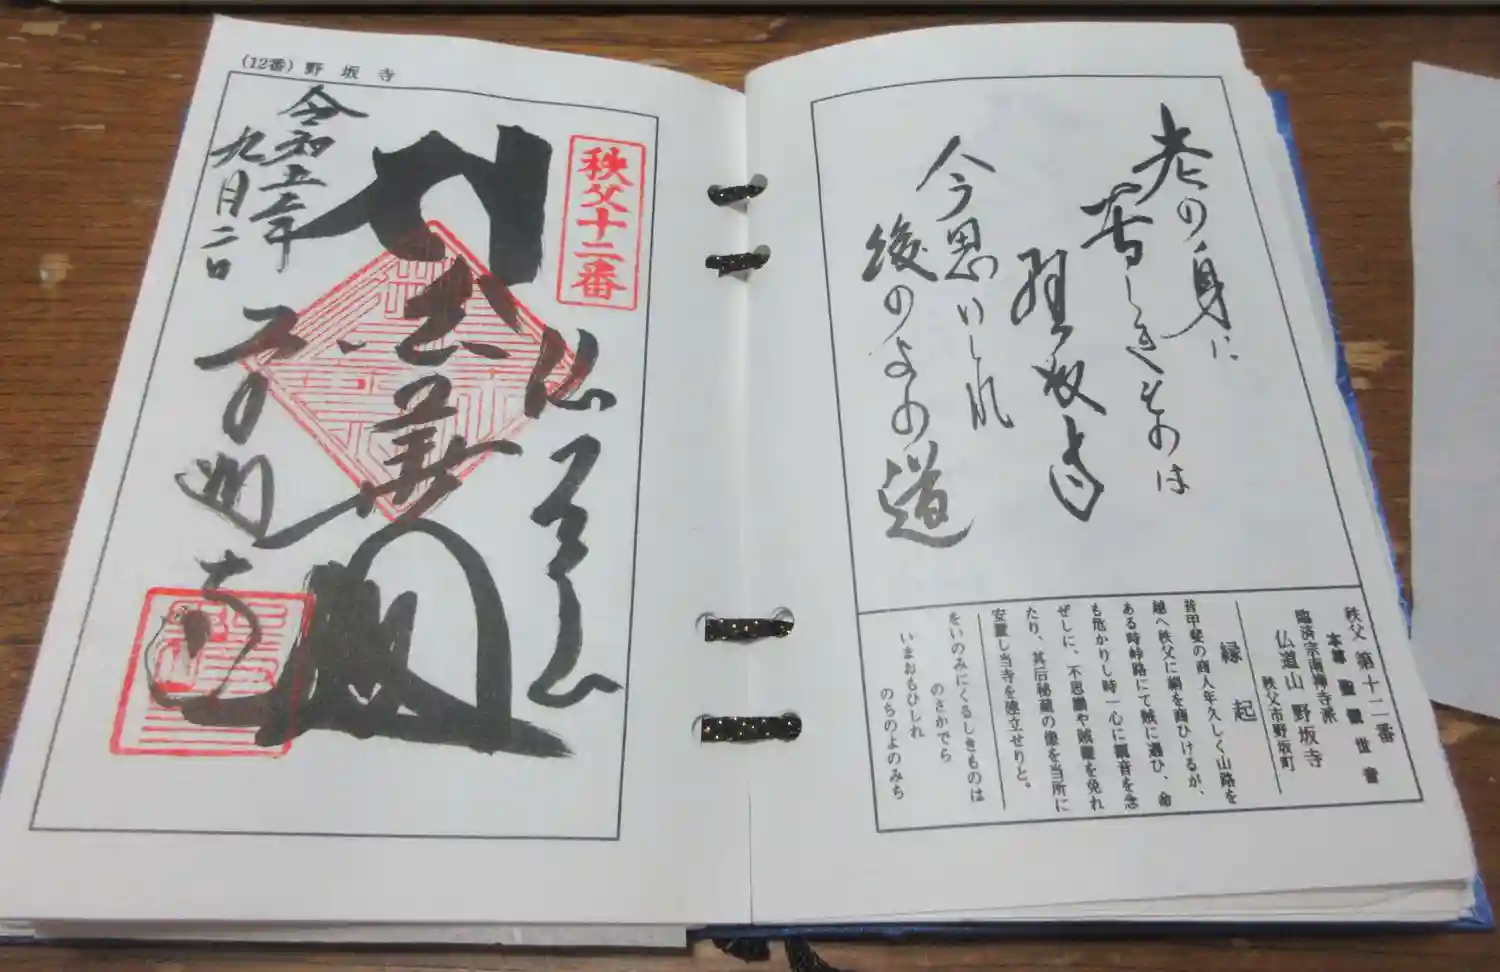 老の身に
苦しきものは
野坂寺
今思いしれ
後のよの道
秩父 第十二番
本尊 聖観世音
臨済宗南禅寺派
仏道山 野坂寺
秩父市野坂町
縁起
昔甲斐の商人年久しく山路を
越へ秩父に絹を商ひけるが、
ある時峠路にて賊に遇ひ、命
も危かりし時一心に観音を念
ぜしに、不思議や賊難を免れ
たり、其后秘蔵の像を当所に
安置し当寺を建立せりと。
をいのみにくるしきものは
のさかでら
いまおもひしれ
のちのよのみち
(12番) 野坂寺
秩父十二番
仏道山
令和
九月二日
寺